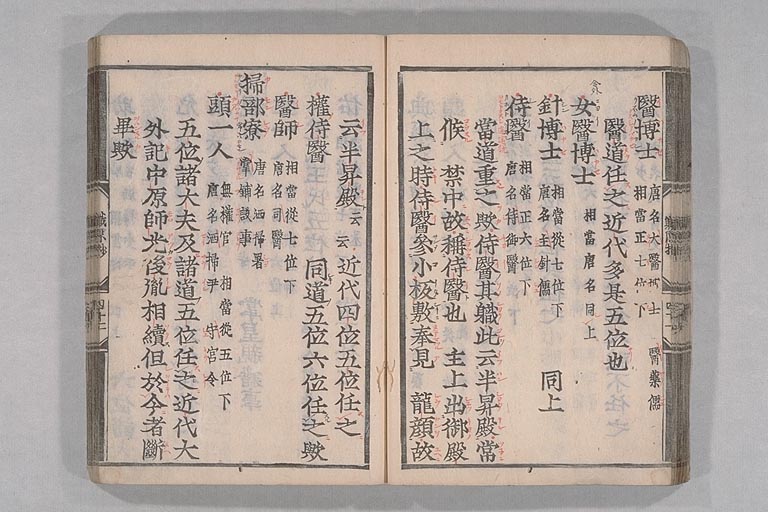 醫博士 唐名大醫博士 醫藥儒
相當正七位下
醫道任之近代多是五位也
女醫博士 相當唐名同上
針博士 相當從七位下 同上
唐名主針儒
侍醫 相當正六位下
唐名侍御醫
當道重之歟侍醫其職此云半昇殿常
候 禁中故稱侍醫也 主上出御殿
上之時侍醫參小板敷奉見 龍顔故
云半昇殿云云近代四位五位任之
權侍醫 同道五位六位任之歟
醫師 相當從七位下
唐名司醫
掃部寮 唐名洒掃署
掌鋪設事
頭一人 無權官 相當從五位下
唐名洒掃尹 守宮令
五位諸大夫及諸道五位任之近代大
外記中原師光後胤相續但於今者斷
畢歟
職原抄 四十二